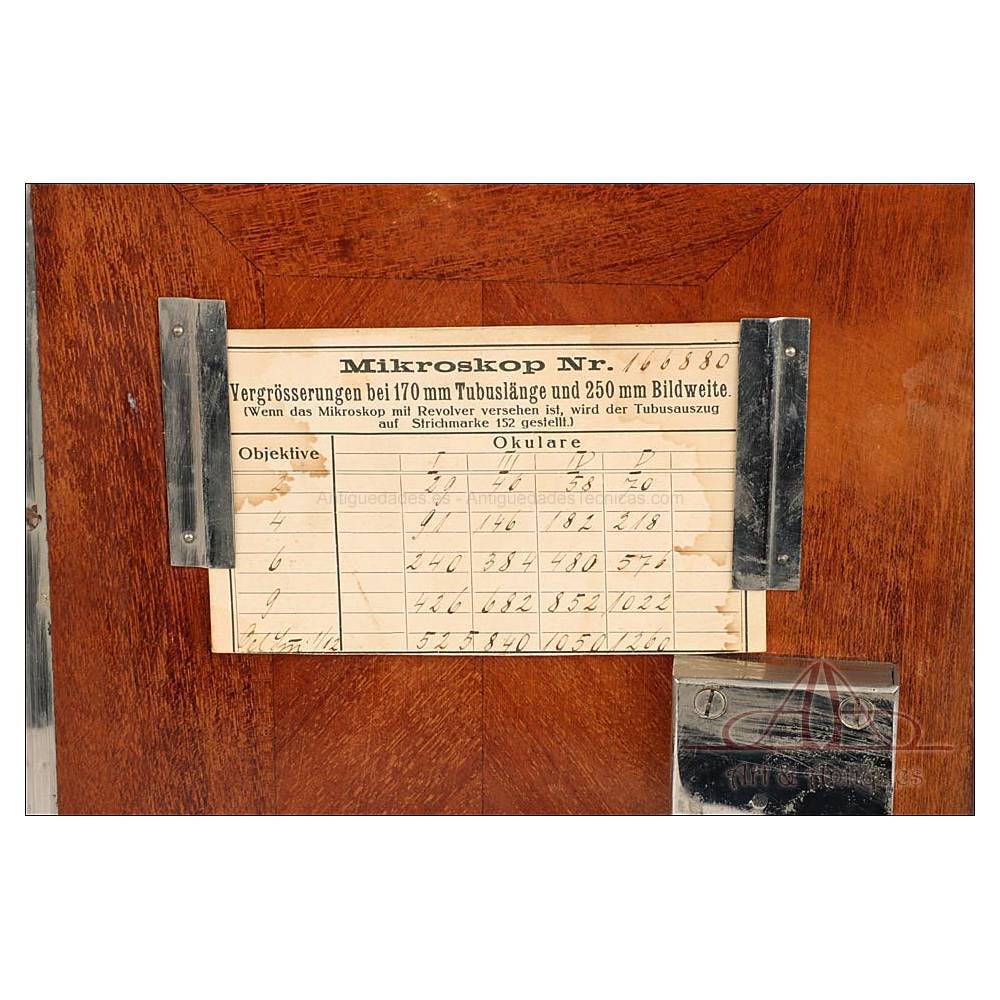 Mikroskop Nr. 166880
Vergrösserungen bei 170 mm Tubuslänge und 250 mm Bildweite.
(Wenn das Mikroskop mit Revolver versehen ist, wird der Tubusauszug
auf Strichmarke 152 gestellt.)
Objektive Okulare
I III IV V
2 29 46 58 70
Antiguedades.es - AntiguedadesTecnicas.com
4 91 146 182 218
6 240 384 480 576
9 426 682 852 1022
1/12 525 840 1050 1260
Art & Antiques